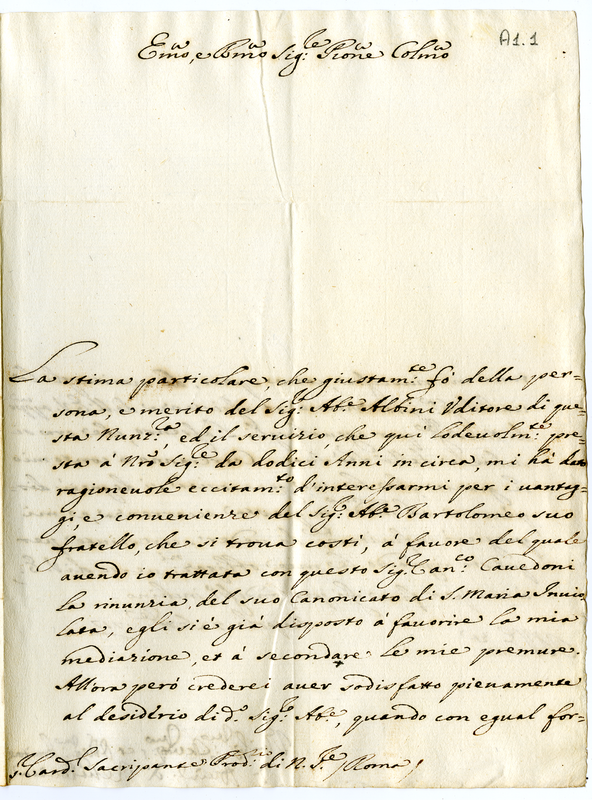 A1.1
Emo, e Rmo Sig:re Prone Colmo
La stima particolare, che giustam:te fò della per=
sona, e merito del Sig:r Ab:e Albini Vditore di que=
sta Nunz:ra, ed il seruizio, che quì lodeuolm:te pre=
sta à Nro Sig:re da dodici Anni in circa, mi hà dato
ragioneuole eccitam:to d'interessarmi per i vantag=
gi, e conuenienze del Sig:r Ab:e Bartolomeo suo
fratello, che si troua costì, à fauore del quale
auendo io trattata con questo Sig:r Can:co Cauedoni
la rinunzia del suo Canonicato di S. Maria Inuio
lata, egli si è già disposto à fauorire la mia
mediazione, et à secondare le mie premure.
Allora però crederei auer sodisfatto pienamente
al desiderio di d:o Sig:r Ab:e, quando con egual for=
S:r Card:l Sacripante Prod:rio di N. S:re /Roma/